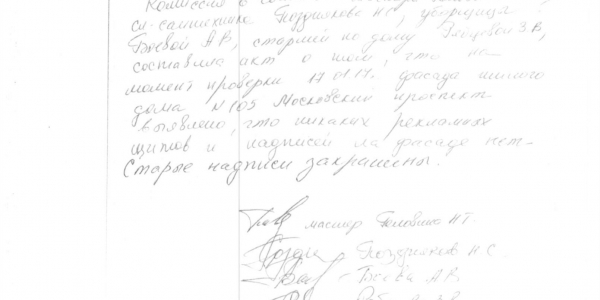 Комиссия в составе
сл-сантехника Позднякова Н.С., уборщица
Боевой А.В, старшей по дому З.В,
составила акт о том, что на
момент проверки 17.01.17г. фасада жилого
дома №105 Московский проспект
выявлено, что никаких рекламных
щитов и надписей на фасаде нет.
Старые надписи закрашены.
мастер Головина Н.Т.
Поздняков Н.С.
Боева А.В.
З.В.